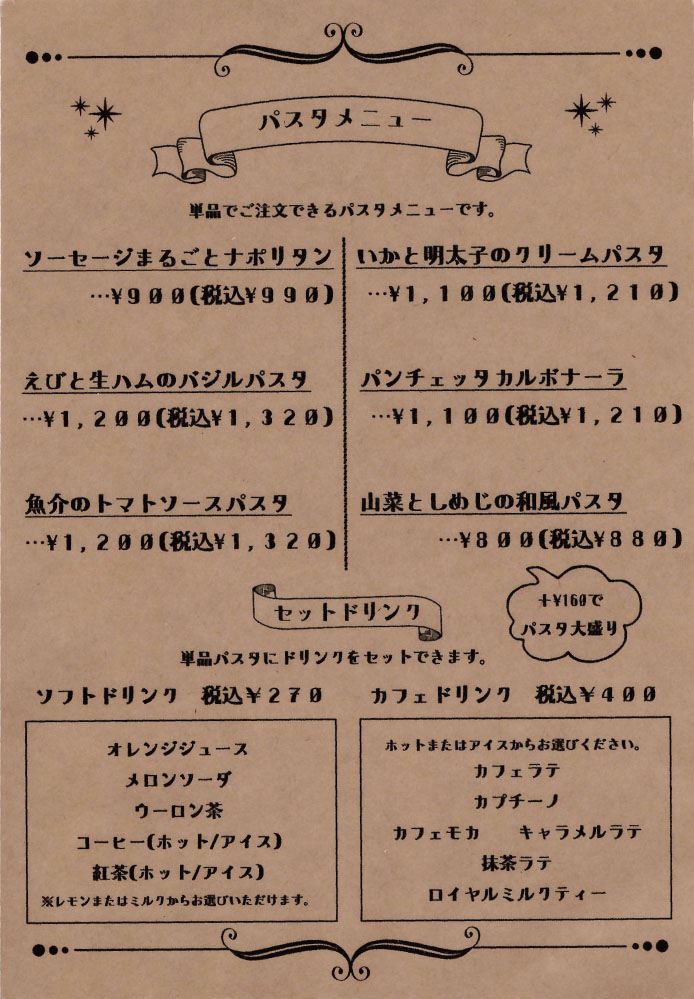 パスタメニュー
単品でご注文できるパスタメニューです。
ソーセージまるごとナポリタン
…¥900(税込¥990)
えびと生ハムのバジルパスタ
…¥1,200(税込¥1,320)
魚介のトマトソースパスタ
…¥1,200(税込¥1,320)
いかと明太子のクリームパスタ
…¥1,100(税込¥1,210)
パンチェッタカルボナーラ
…¥1,100(税込¥1,210)
山菜としめじの和風パスタ
…¥800(税込¥880)
+¥160で
パスタ大盛り
セットドリンク
単品パスタにドリンクをセットできます。
ソフトドリンク 税込¥270
オレンジジュース
メロンソーダ
ウーロン茶
コーヒー(ホット/アイス)
紅茶(ホット/アイス)
※レモンまたはミルクからお選びいただけます。
カフェドリンク 税込¥400
ホットまたはアイスからお選びください。
カフェラテ
カプチーノ
カフェモカ キャラメルラテ
抹茶ラテ
ロイヤルミルクティー